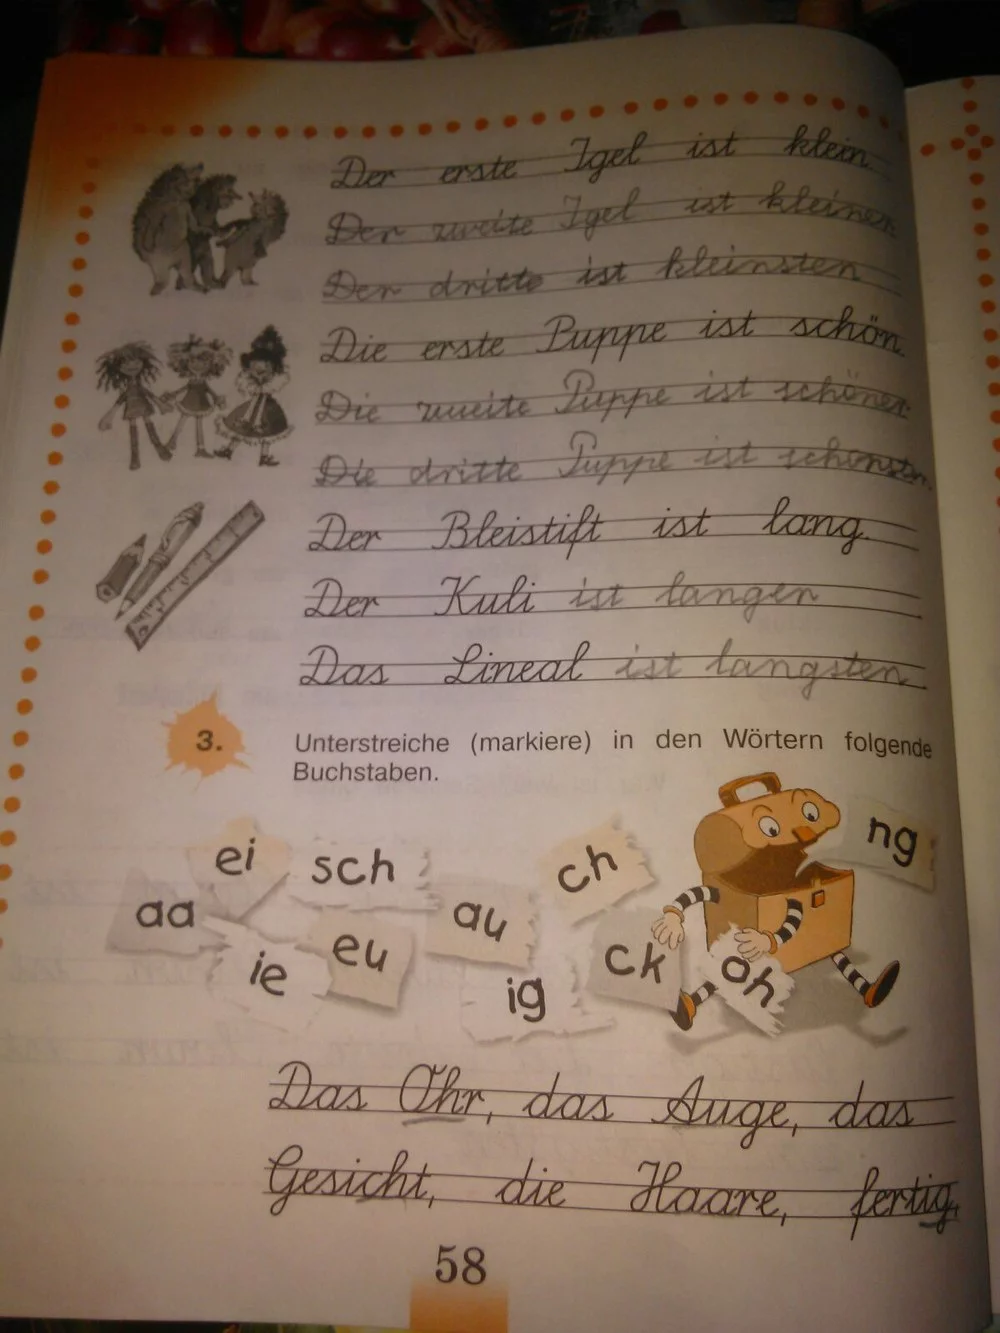 Der erste Igel ist klein.
Der zweite Igel ist kleiner
Der dritte ist kleinsten
Die erste Puppe ist schön.
Die zweite Puppe ist schöner.
Die dritte Puppe ist schönsten.
Der Bleistift ist lang.
Der Kuli ist langer
Das Lineal ist langsten
3. Unterstreiche (markiere) in den Wörtern folgende
Buchstaben.
ei sch ch ng
aa au
ie eu ig ck oh
Das Ohr, das Auge, das
Gesicht, die Haare, fertig,
58